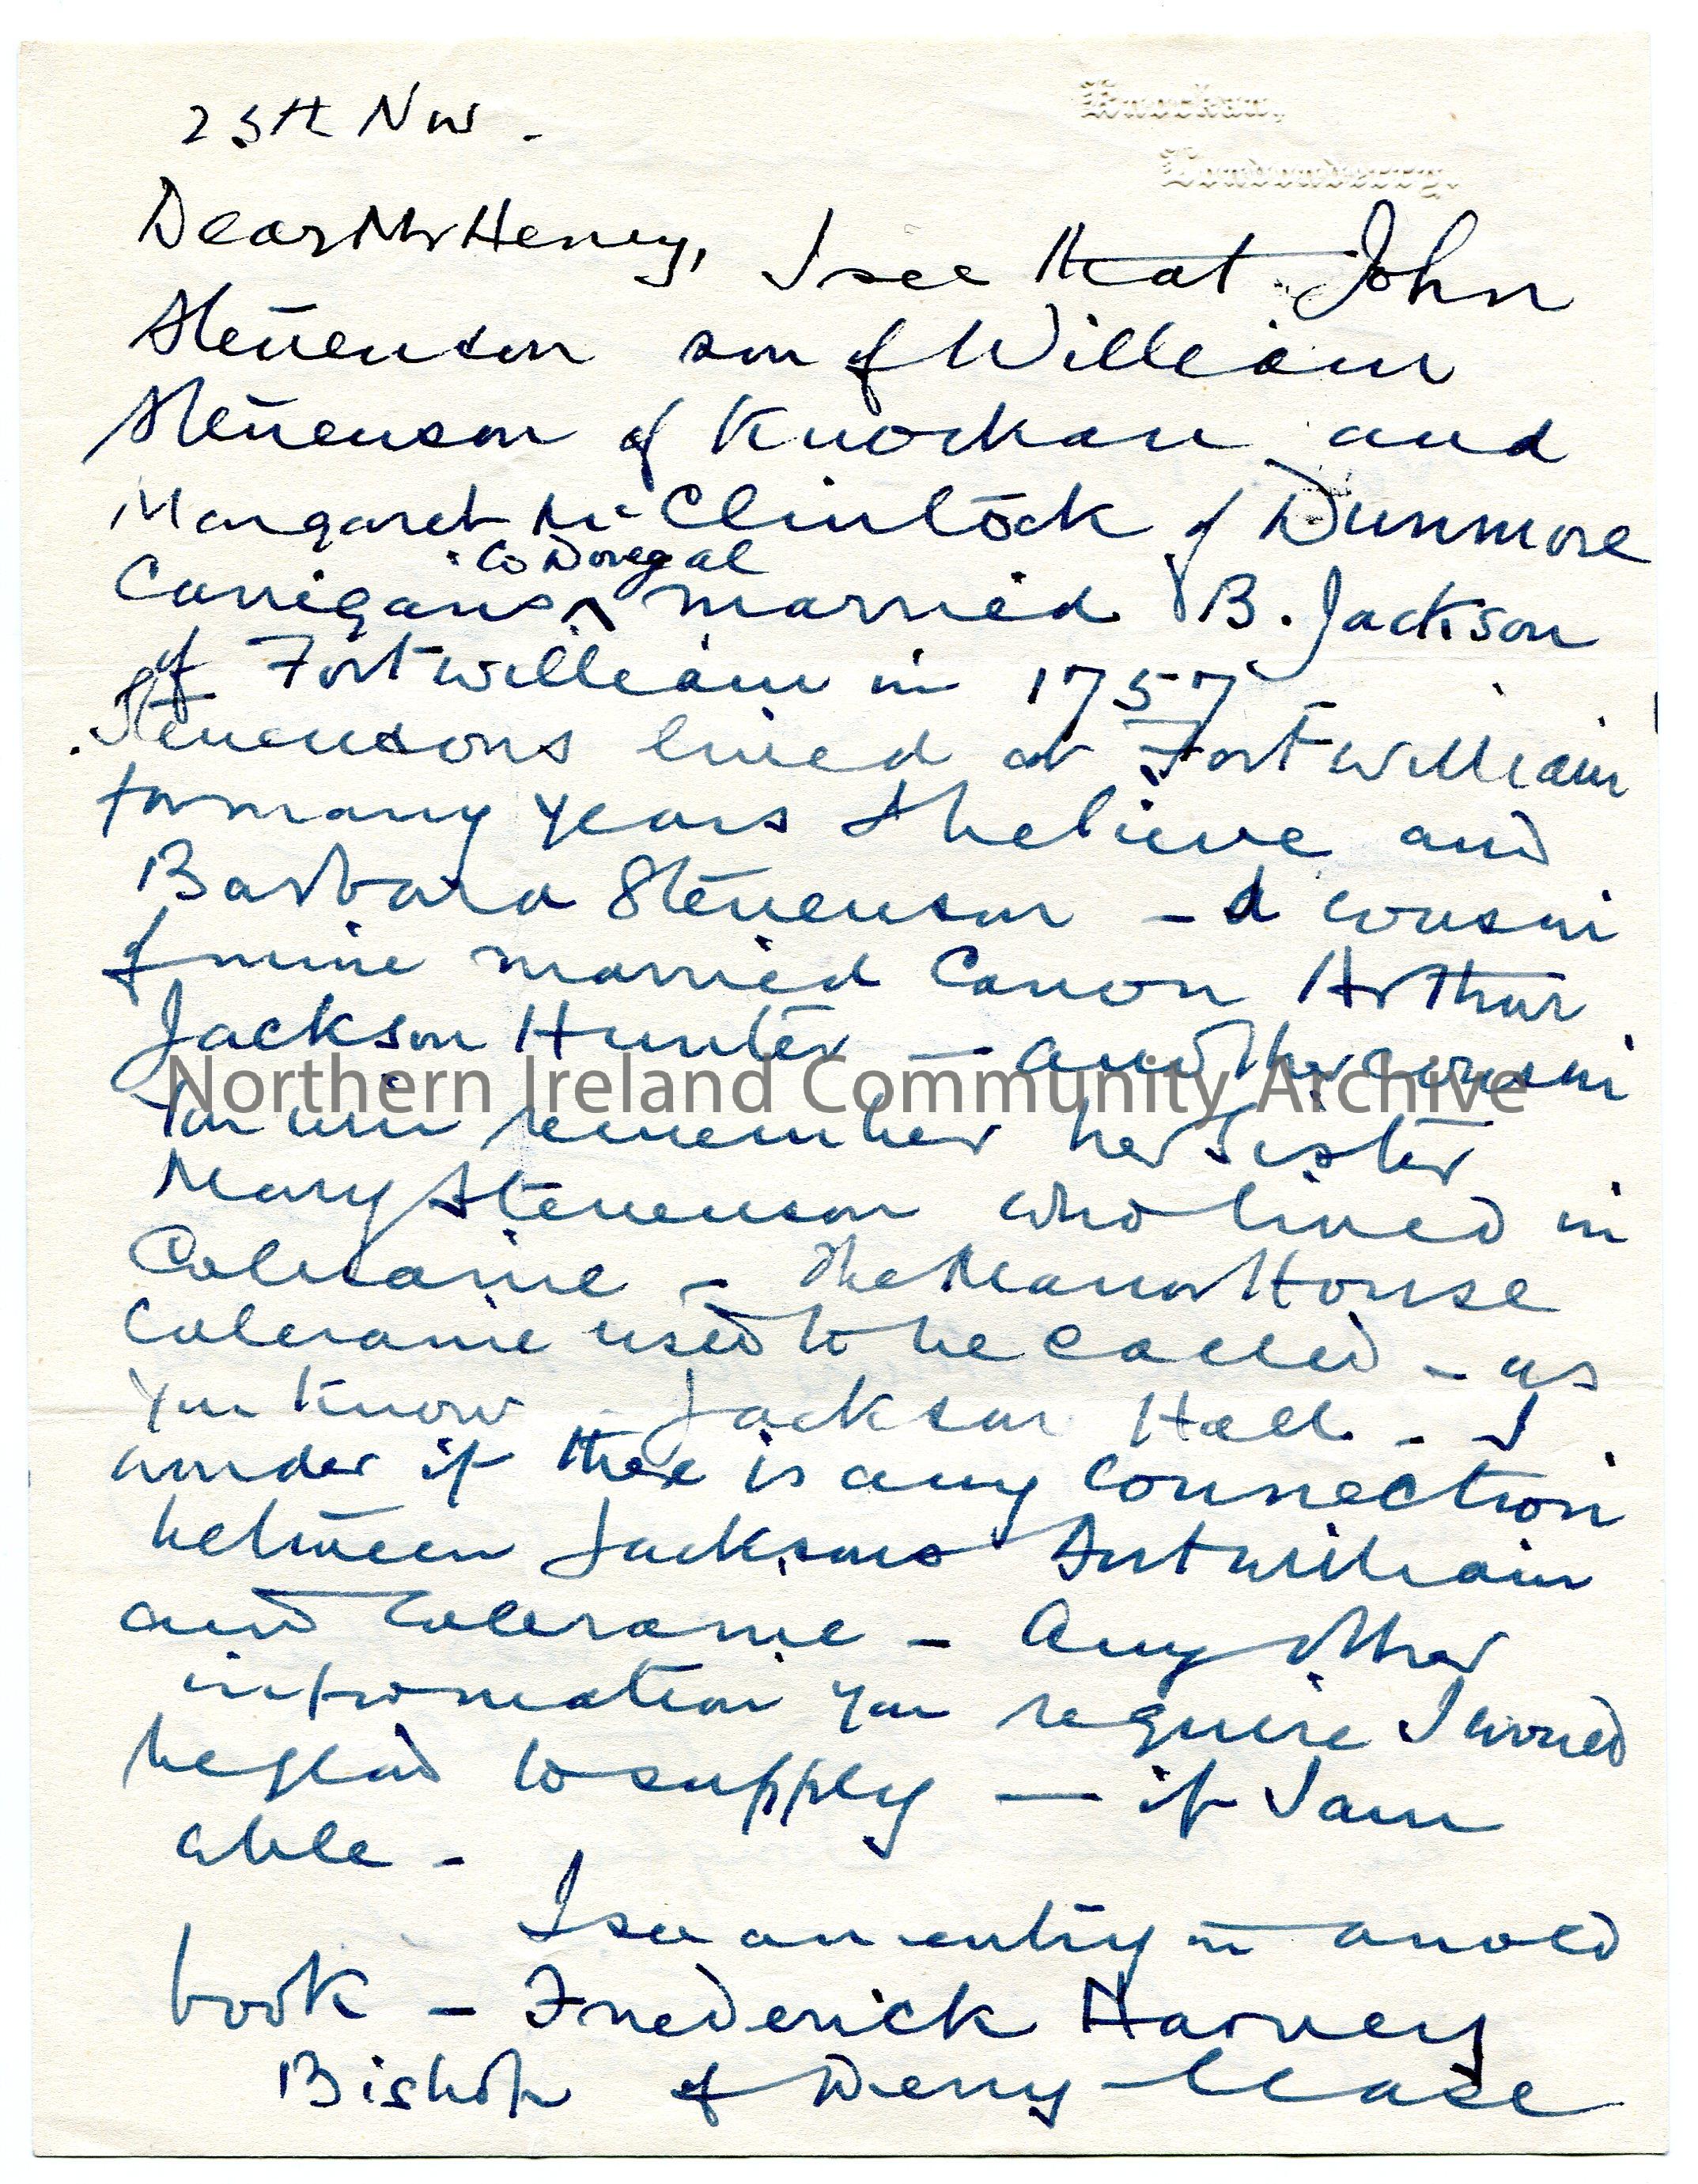 Knockan,
Londonderry.
25th Nov -
Dear Mr Henry, I see that John
Stevenson son of William
Stevenson of Knockan and
Margaret McClintock of Dunmore
Co Donegal
Carrigans ^ married B. Jackson
of Fortwilliam in 1757
Stevensons lived at Fortwilliam
for many years I believe and
Barbara Stevenson - a cousin
of mine married Canon Arthur
Jackson Hunter — another cousin
Northern Ireland Community Archive
You will remember her sister
Mary Stevenson who lived in
Coleraine - The Manor House
Coleraine used to be called - as
you know - Jackson Hall - I
wonder if there is any connection
between Jacksons Fortwilliam
and Coleraine - Any other
information you require I would
be glad to supply — if I am
able -
I see an entry in an old
book - Frederick Harvey
Bishop of Derry - lease